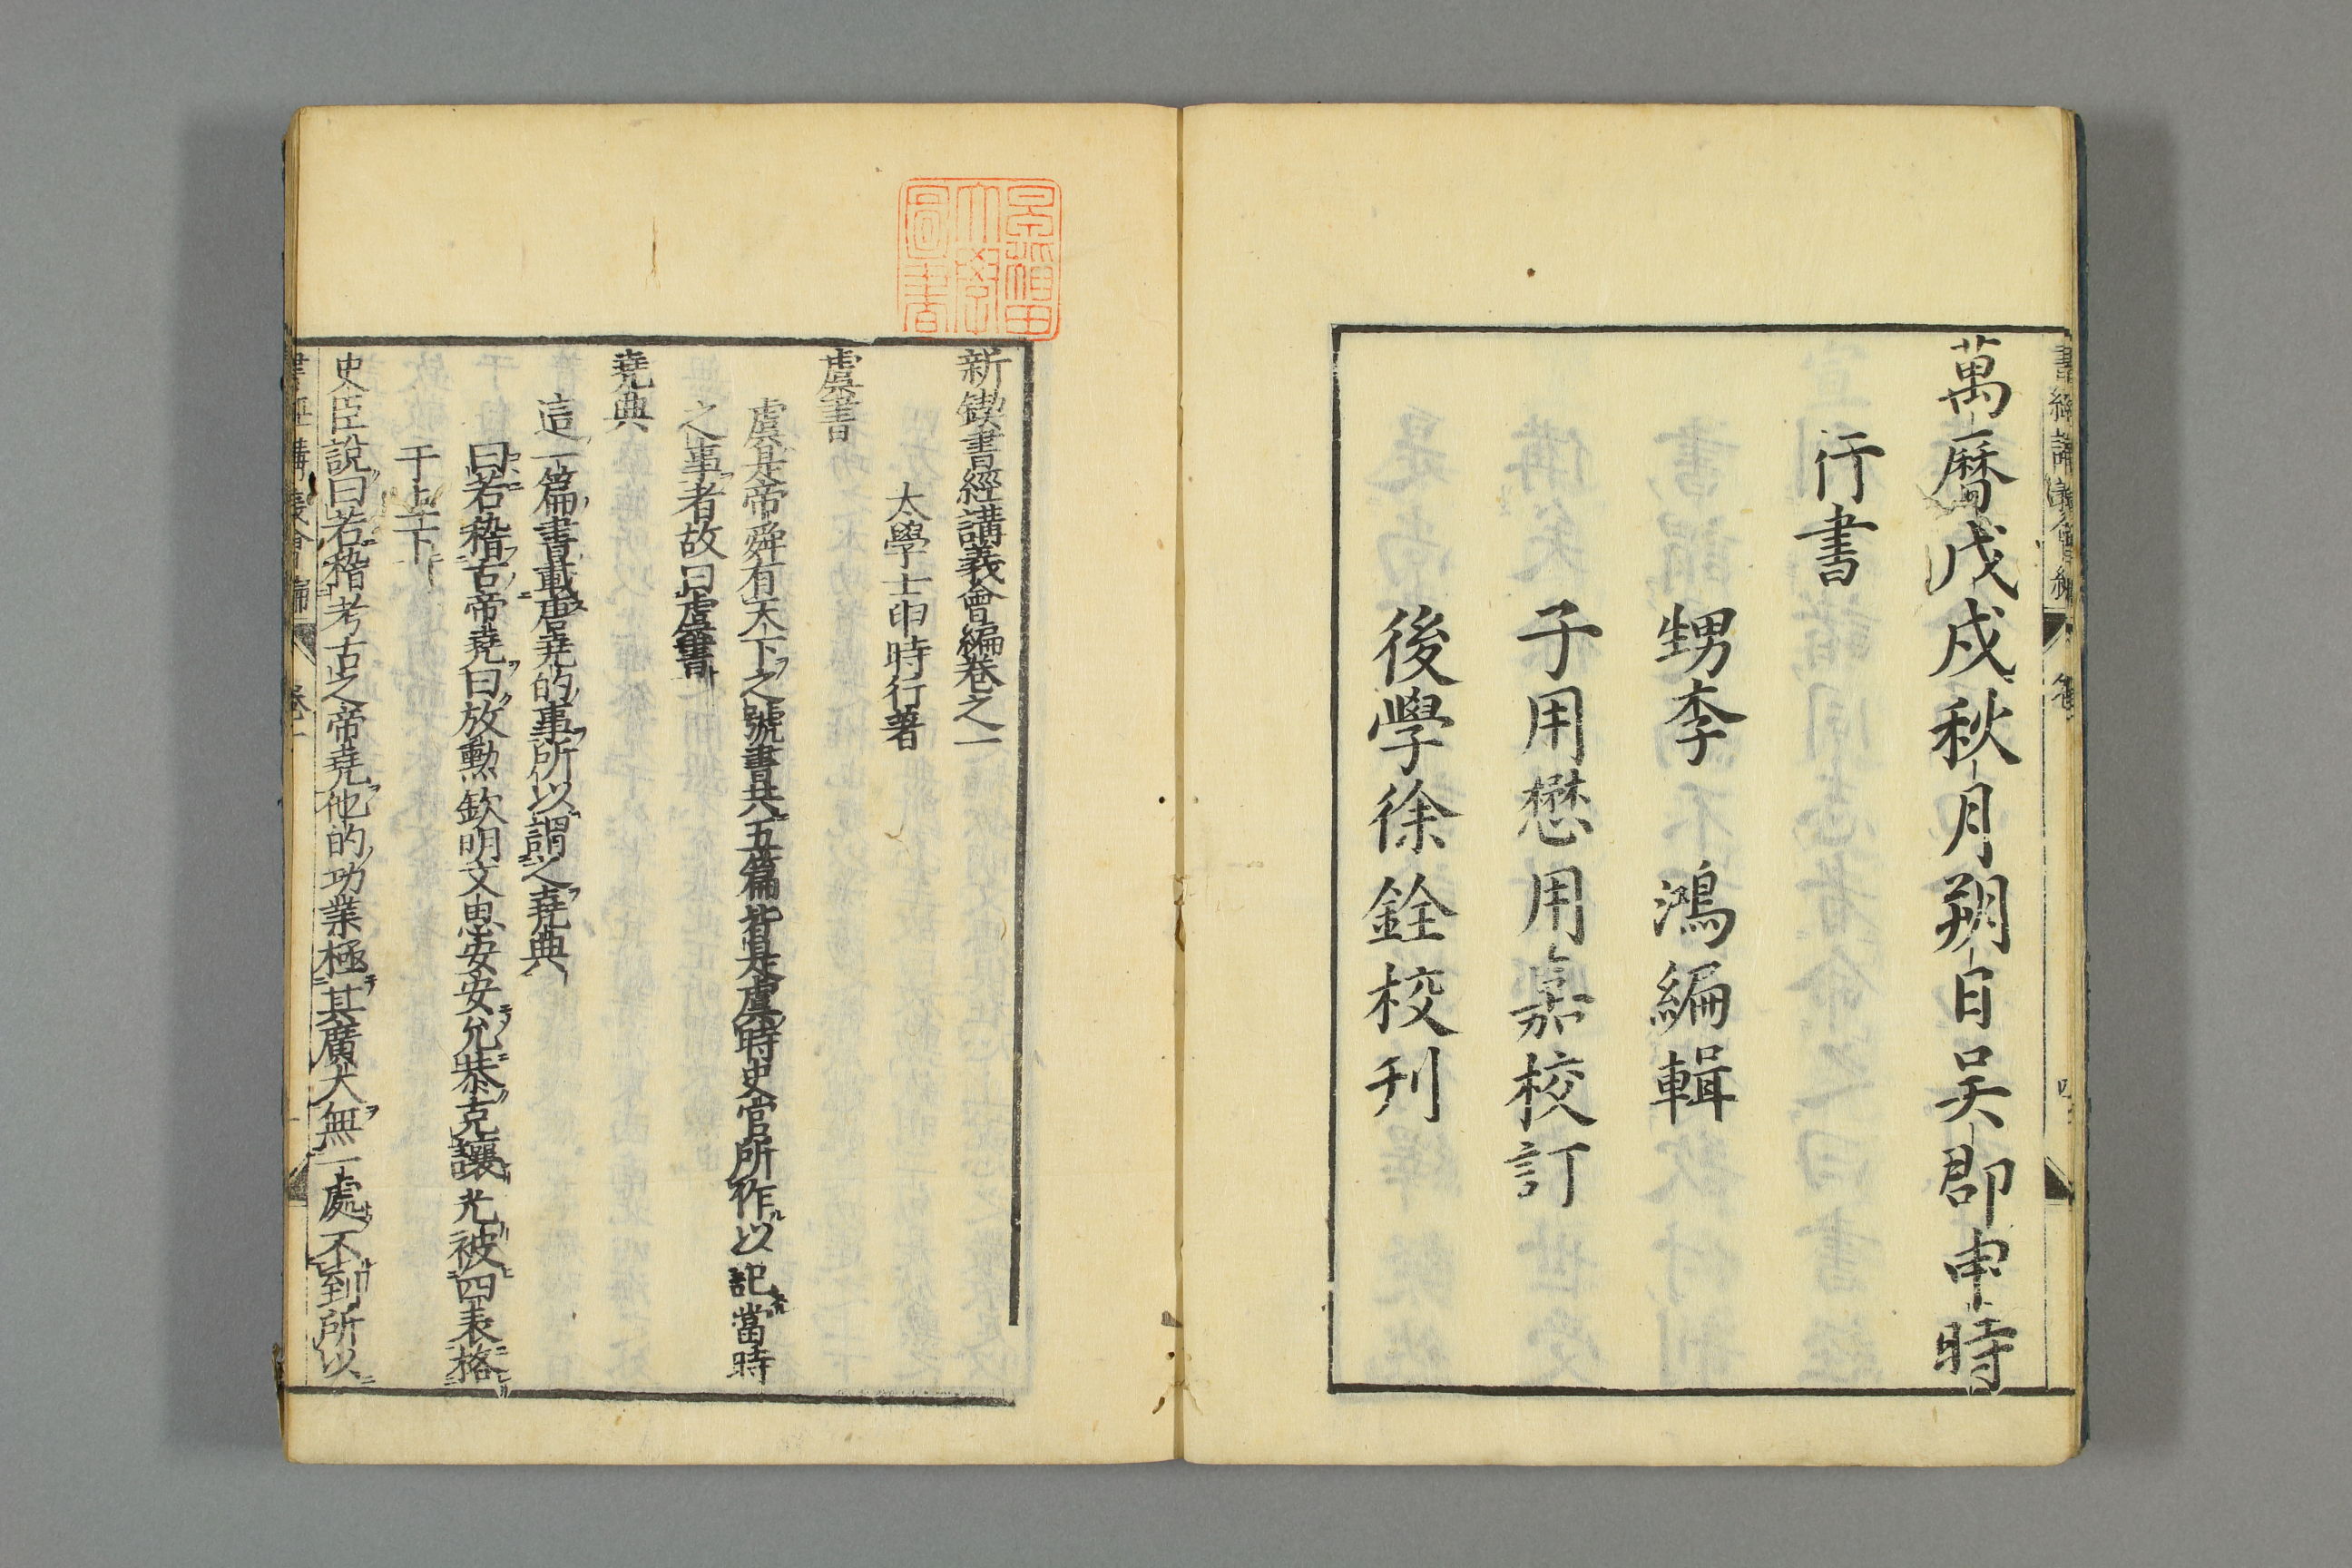 萬曆戊戌秋月朔日吳郡申時
行書
甥李 鴻編輯
子用懋用嘉校訂
後學徐銓校刋
早稲田大學圖書
新鍥書經講義會編卷之一
太學士申時行著
虞書
虞是帝舜有天下之號書共五篇皆是虞時史官所作以記當時
之事者故曰虞書
堯典
這一篇書載唐堯的事所以謂之堯典
曰若稽古帝堯曰放勳欽明文思安安允恭克讓光被四表格
于上下
史臣說曰若稽考古之帝堯他的功業極其廣大無一處不到所以
書經講義會編 卷一